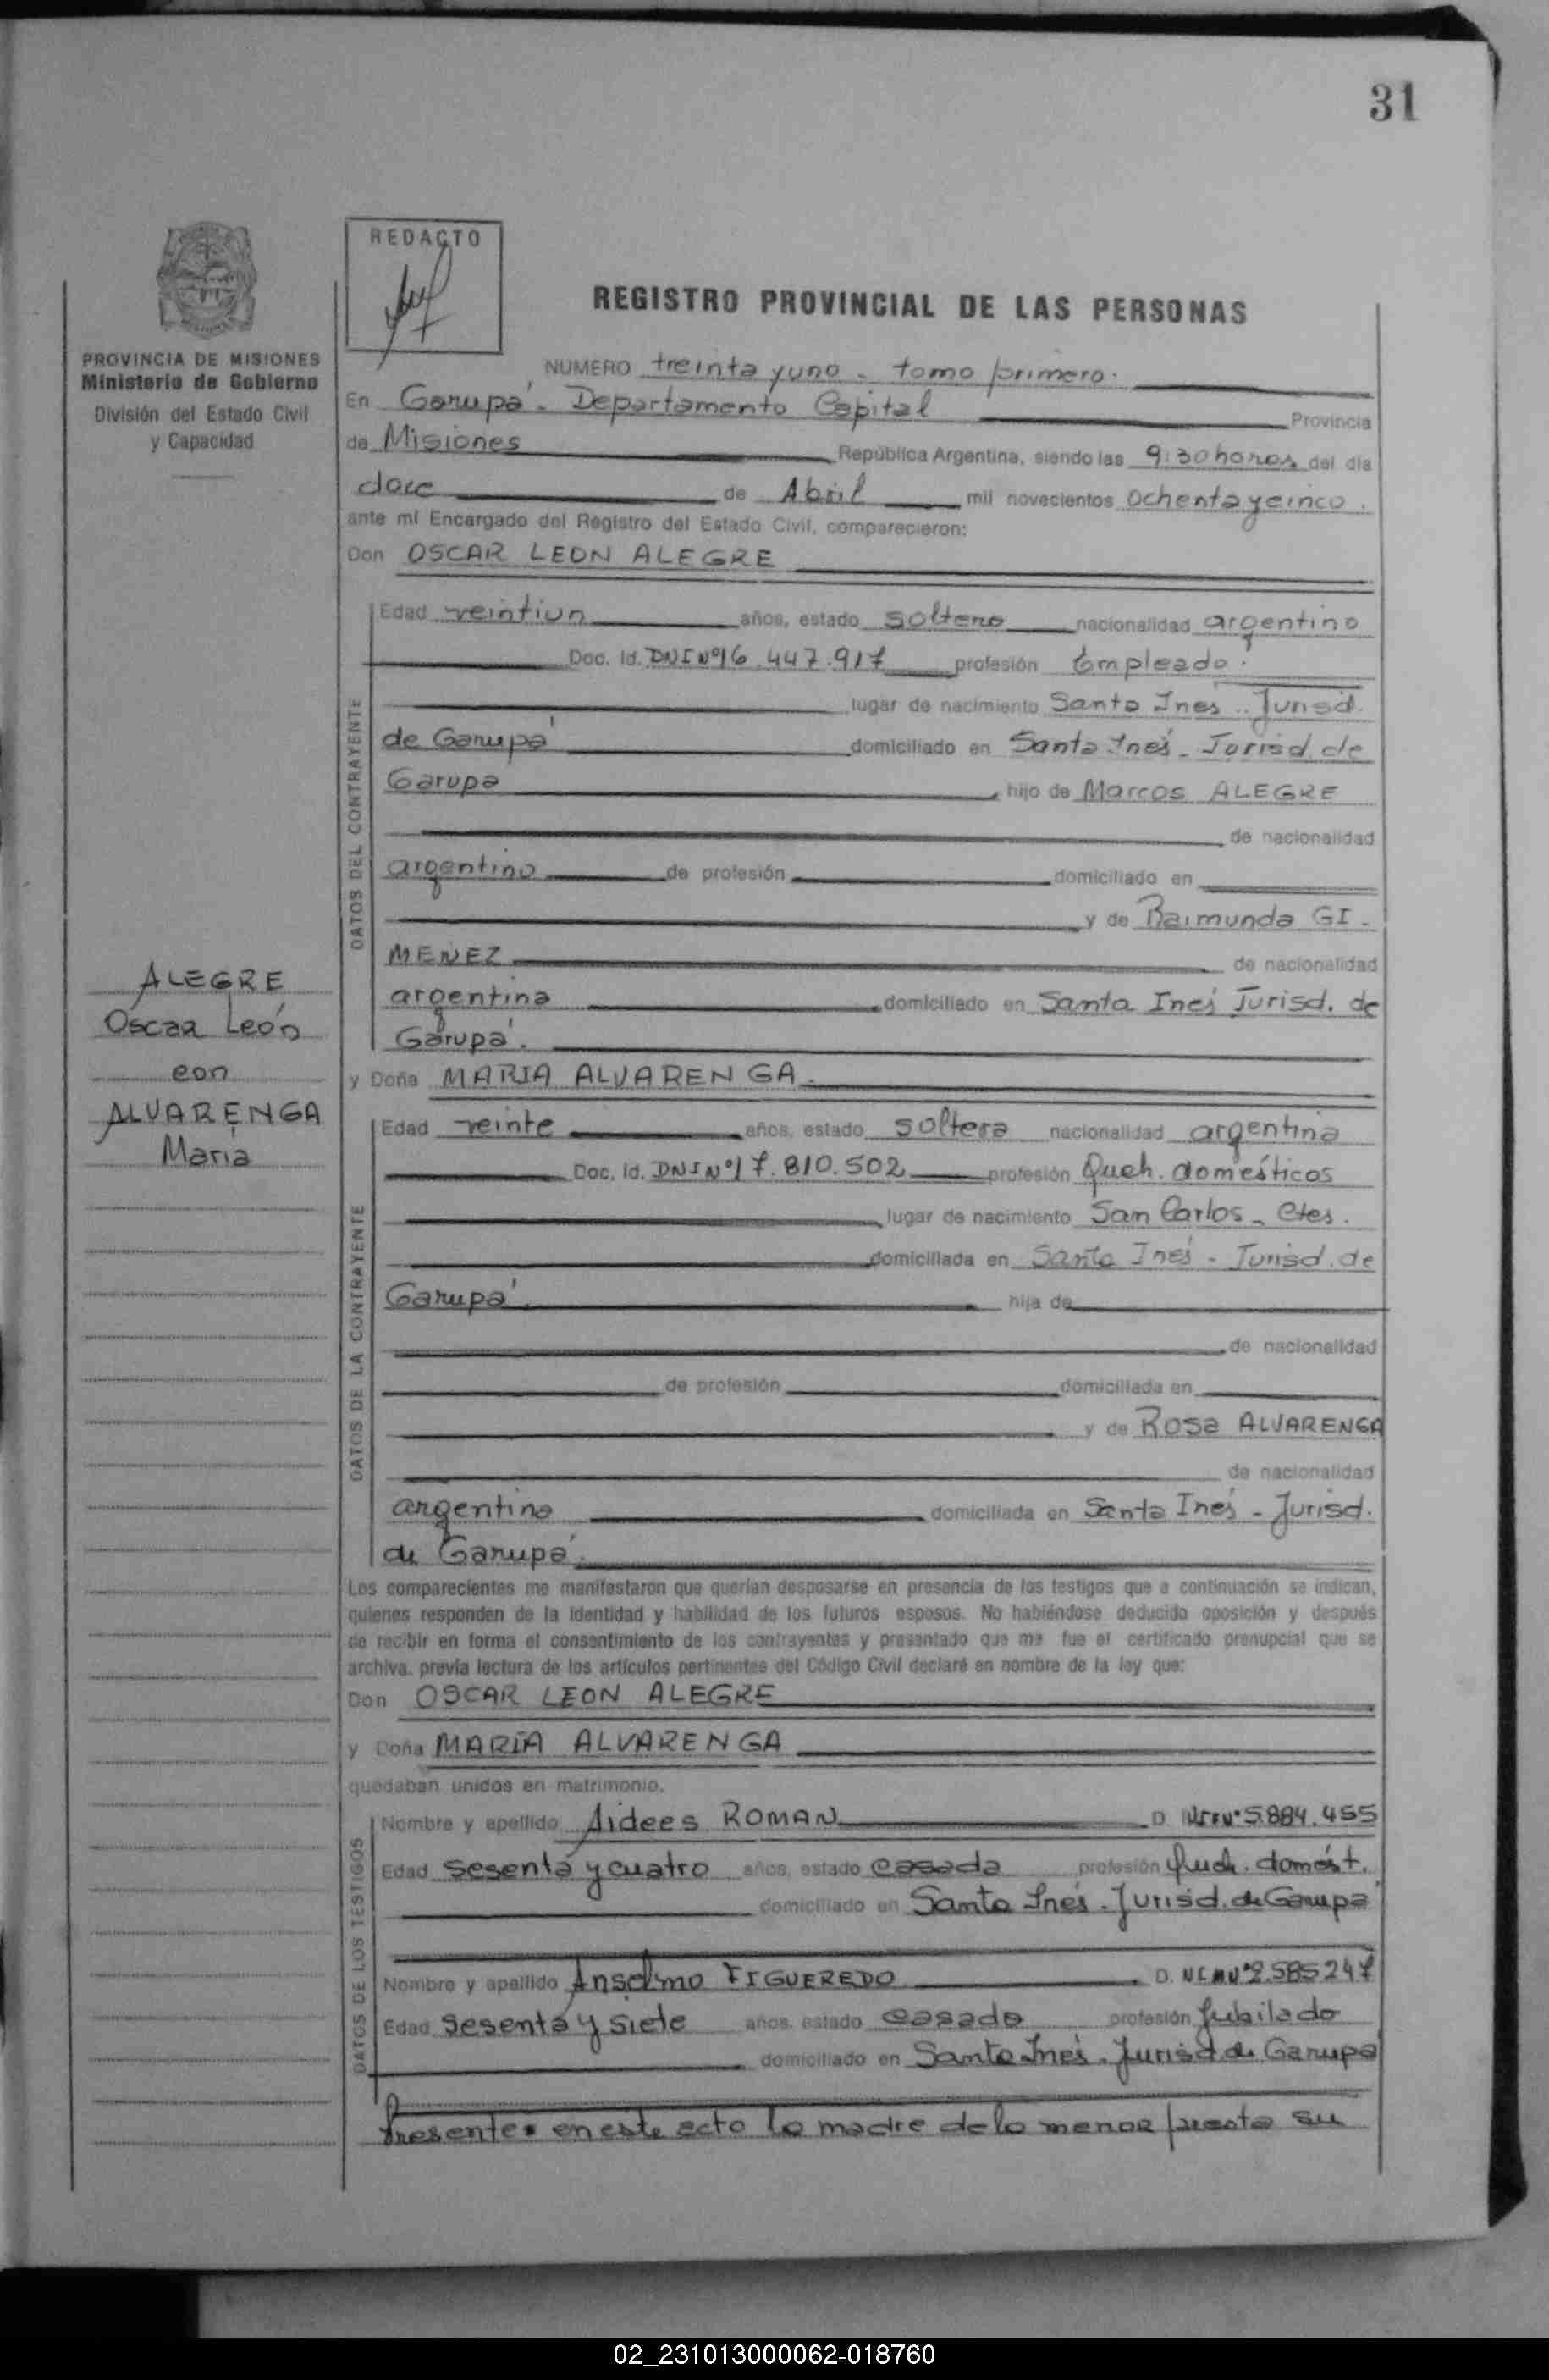 31
REDACTO
REGISTRO PROVINCIAL DE LAS PERSONAS
PROVINCIA DE MISIONES
Ministerio de Gobierno
División del Estado Civil
y Capacidad
NUMERO treinta y uno - tomo primero.
En Garupá - Departamento Capital Provincia
de Misiones República Argentina, siendo las 9:30 horas del día
doce de Abril mil novecientos ochenta y cinco.
ante mí Encargado del Registro del Estado Civil, comparecieron:
Don OSCAR LEON ALEGRE
DATOS DEL CONTRAYENTE
Edad veintiun años, estado soltero nacionalidad argentino
Doc. Id. DNI Nº 16.447.917 profesión Empleado.
lugar de nacimiento Santa Inés - Jurisd.
de Garupá domiciliado en Santa Inés - Jurisd. de
Garupa hijo de Marcos ALEGRE
de nacionalidad
argentino de profesión domiciliado en
y de Raimunda GI-
MENEZ de nacionalidad
argentina domiciliado en Santa Inés Jurisd. de
Garupá.
y Doña MARIA ALVARENGA.
ALEGRE
Oscar León
con
ALVARENGA
María
DATOS DE LA CONTRAYENTE
Edad veinte años, estado soltera nacionalidad argentina
Doc. Id. DNI Nº 17.810.502 profesión Queh. domésticos
lugar de nacimiento San Carlos - Ctes.
domiciliada en Santa Inés - Jurisd. de
Garupá. hija de
de nacionalidad
de profesión domiciliada en
y de Rosa ALVARENGA
de nacionalidad
argentina domiciliada en Santa Inés - Jurisd.
de Garupá.
Los comparecientes me manifestaron que querían desposarse en presencia de los testigos que a continuación se indican,
quienes responden de la identidad y habilidad de los futuros esposos. No habiéndose deducido oposición y después
de recibir en forma el consentimiento de los contrayentes y presentado que me fue el certificado prenupcial que se
archiva, previa lectura de los artículos pertinentes del Código Civil declaré en nombre de la ley que:
Don OSCAR LEON ALEGRE
y Doña MARIA ALVARENGA
quedaban unidos en matrimonio.
DATOS DE LOS TESTIGOS
Nombre y apellido Aidees ROMAN D. Nº 5.884.455
Edad sesenta y cuatro años, estado casada profesión Queh. domést.
domiciliado en Santa Inés - Jurisd. de Garupá
Nombre y apellido Anselmo FIGUEREDO D. Nº 2.585247
Edad sesenta y siete años, estado casado profesión Jubilado
domiciliado en Santa Inés - Jurisd. de Garupá
Presente en este acto la madre de la menor presta su
02_231013000062-018760